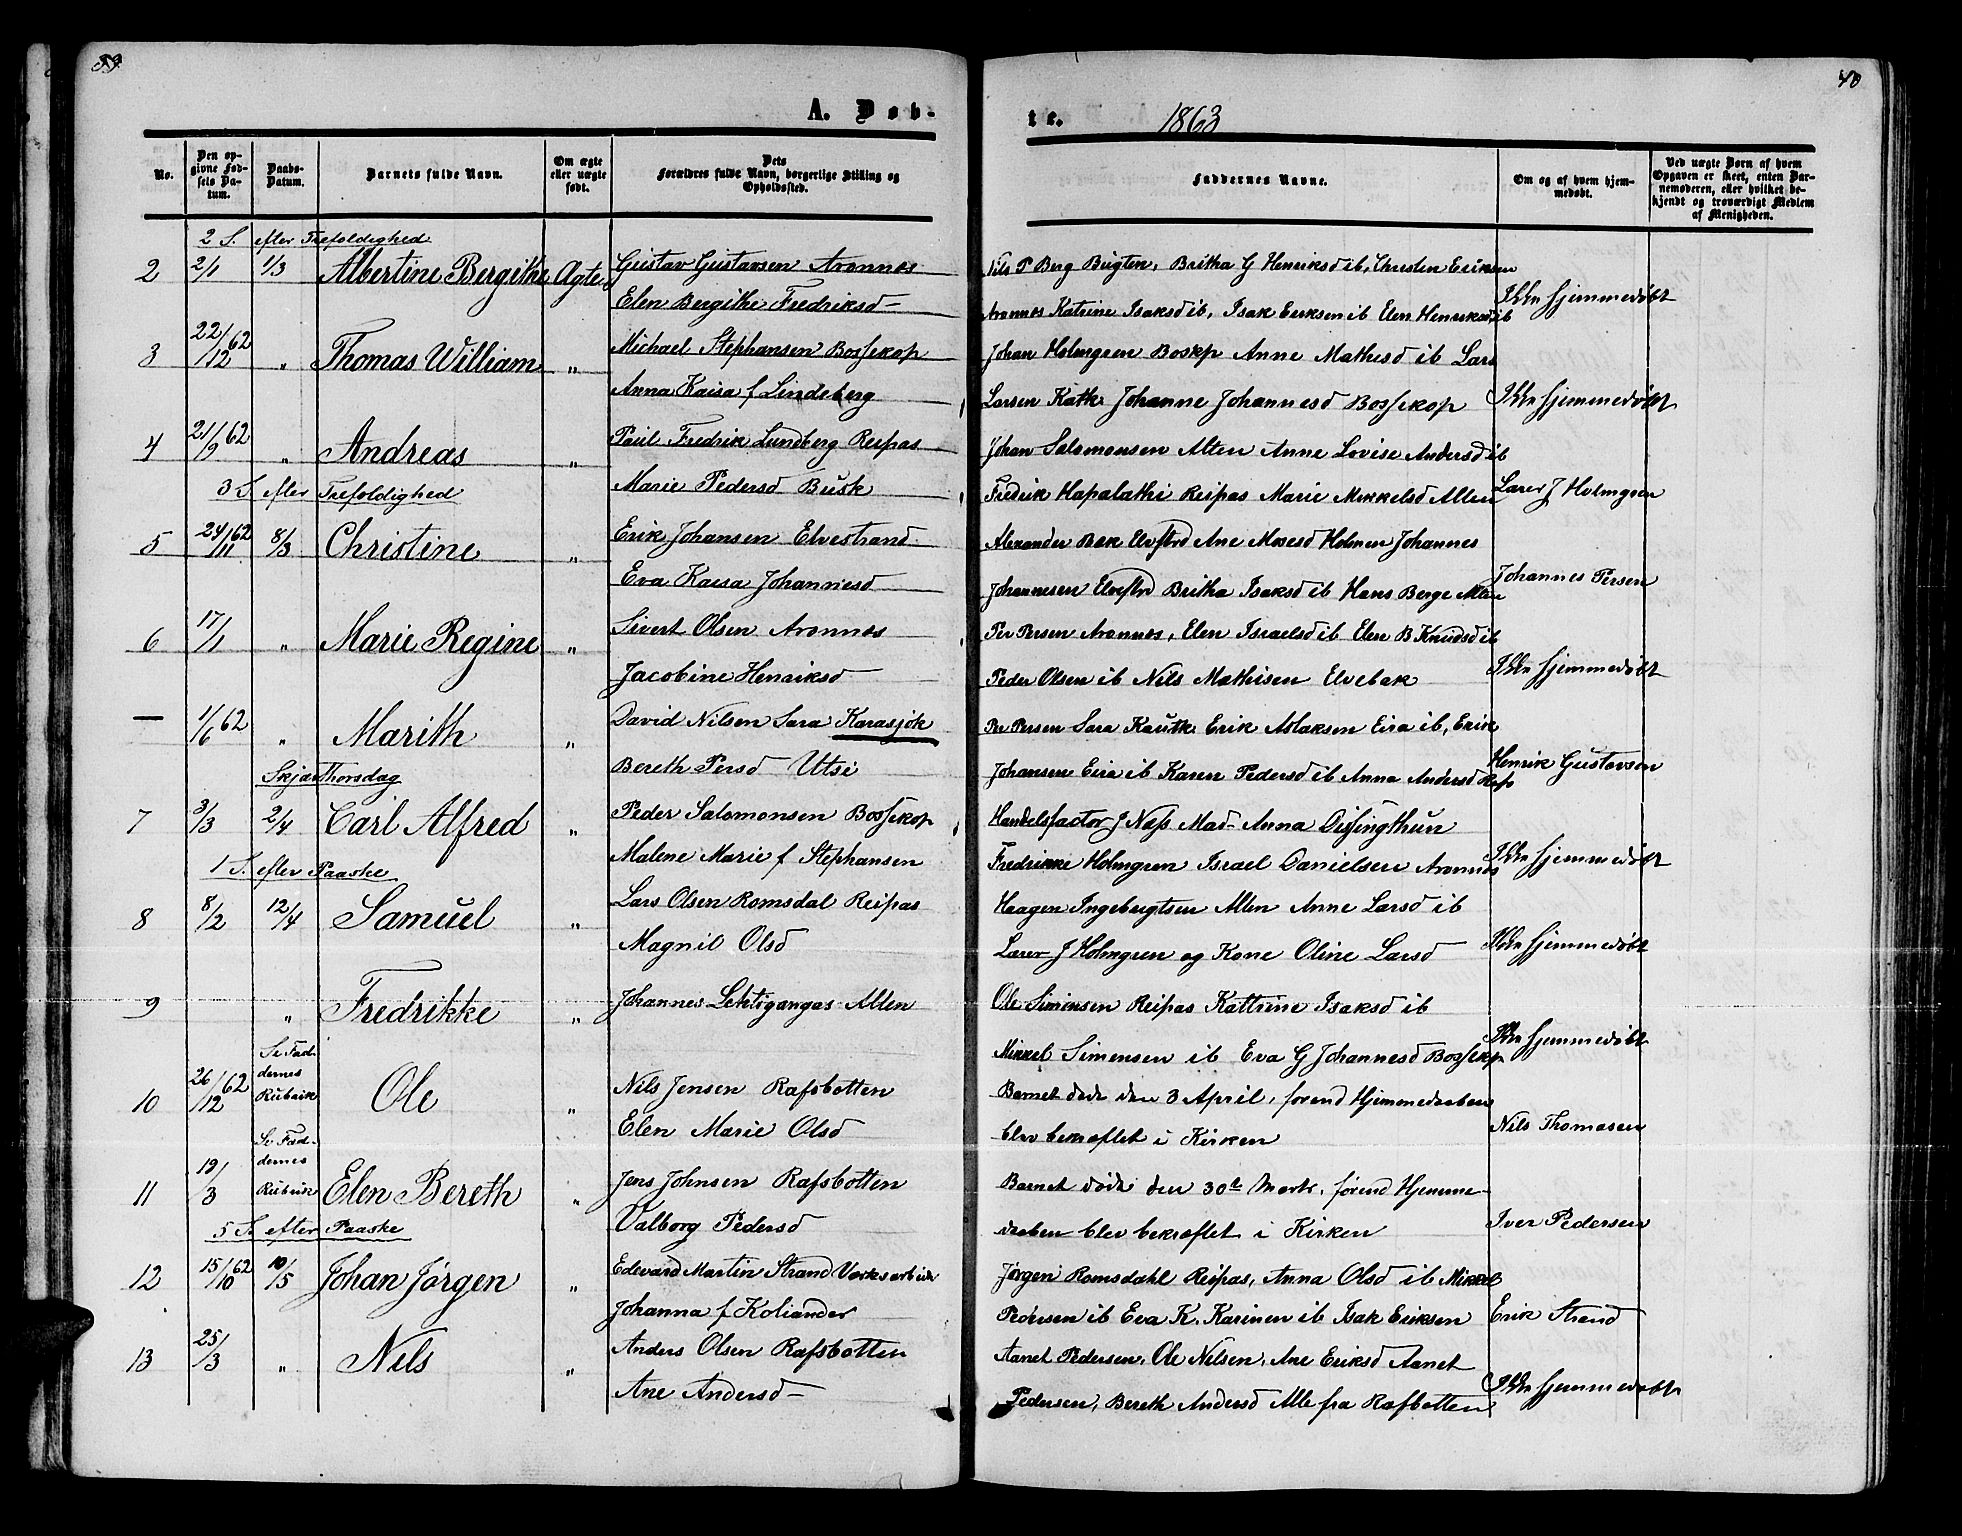 39
40
A. Døb-
te. 1863
No.
Den opgivne Fødsels Datum.
Daabs-Datum.
Barnets fulde Navn.
Om ægte eller uægte født.
Dets Forældres fulde Navn, borgerlige Stilling og Opholdssted.
Faddernes Navne.
Om og af hvem hjemmedøbt.
Ved uægte Børn af hvem Opgaven er skeet, enten Barnemoderen, eller hvilket bekjendt og troværdigt Medlem af Menigheden.
2 S. efter Trefoldighed
2 2/1 1/3 Albertine Bergithe Ægte Gustav Gustavsen Aronnes Nils P Berg Bugten, Britha G Henriksd ib, Christen Eriksen
Elen Bergithe Fredriksd Aronnes Katrine Isaksd ib, Isak Eriksen ib Elen Henriksd ib Ikke hjemmedøbt
3 22/12 62 " Thomas William " Michael Stephansen Bossekop Johan Holmgren Boskp Anne Mathisd ib Lars
Anna Kaisa f Lindeberg Larsen Kaik Johanne Johannesd Bossekop Ikke hjemmedøbt
4 21/9 62 " Andreas " Paul Fredrik Lundberg Reipas Johan Salomonsen Alten Anne Lovise Andersd ib
3 S. efter Trefoldighed Marie Pedersd Busk Fredrik Hapalathi Reipas Marie Mikkelsd Alten Lærer J Holmgren
5 24/11 62 8/3 Christine " Erik Johansen Elvestrand Alexander Bæk Elvstrd Ane Mosesd Holmen Johannes
Eva Kaisa Johannesd Johannesen Elvestrd Britha Isaksd ib Hans Berge Alten Johannes Persen
6 17/1 " Marie Regine " Sivert Olsen Aronnes Per Persen Aronnes, Elen Israelsd ib Elen B Knudsd ib
Jacobine Henriksd Peder Olsen ib Nils Mathisen Elvebak Ikke hjemmedøbt
— 1/6 62 " Marith " David Nilsen Sara Karasjok Per Persen Sara Kautk Erik Aslaksen Eira ib, Erik
Skjærthorsdag Bereth Persd Utsi Johansen Eira ib Karen Pedersd ib Anna Andersd Rafs Henrik Gustavsen
7 3/3 2/4 Carl Alfred " Peder Salomonsen Bossekop Handelsfactor J Næss Mad- Anna Dissingthun
1 S. efter Paaske Malene Marie f Stephansen Fredrikke Holmgren Israel Danielsen Aronnes Ikke hjemmedøbt
8 8/2 12/4 Samuel " Lars Olsen Romsdal Reipas Haagen Ingebrigtsen Alten Anne Larsd ib
Magnil Olsd Lærer J Holmgren og Kone Oline Larsd Ikke hjemmedøbt
9 " Fredrikke " Johannes Lehtigangas Alten Ole Simonsen Reipas Kattrine Isaksd ib
Mikkel Simensen ib Eva G Johannesd Bossekop Ikke hjemmedøbt
10 26/12 62 Se Faddernes Rubrik Ole " Nils Jensen Rafsbotten Barnet døde den 3 April, førend Hjemmedaaben
Elen Marie Olsd blev bekræftet i Kirken Nils Thomasen
11 19/3 Se Faddernes Rubrik Elen Bereth " Jens Johnsen Rafsbotten Barnet døde den 30te Marts, førend Hjemme-
5 S. efter Paaske Valborg Pedersd daaben blev bekræftet i Kirken Iver Pedersen
12 15/10 62 10/5 Johan Jørgen " Edevard Martin Strand Værksarbeider Jørgen Romsdahl Reipas, Anna Olsd ib Mikkel
Johanna f Koliander Pedersen ib Eva K. Karinen ib Isak Eriksen Erik Strand
13 25/3 " Nils " Anders Olsen Rafsbotten Aanet Pedersen, Ole Nilsen, Ane Eriksd Aanet
Ane Andersd Pedersen, Bereth Andersd Alle fra Rafbotten Ikke hjemmedøbt